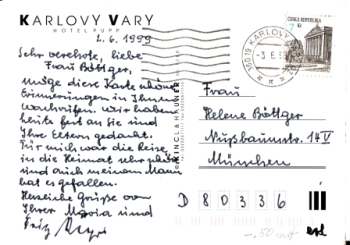 KARLOVY VARY
HOTEL PUPP
2.6.1999
Sehr verehrte, liebe
Frau Böttger,
möge diese Karte schöne
Erinnerungen in Ihnen
wachrufen. Wir haben
heute fest an Sie und
Ihre Eltern gedacht.
Für mich war die Reise
in die Heimat sehr schön
und auch meinem Mann
hat es gefallen.
Herzliche Grüße von
Ihrer Maria und
Fritz
ČESKÁ REPUBLIKA
7 Kč
KARLOVY
Frau
Helene Böttger
Nußbaumstr. 14 V
München
D 80336